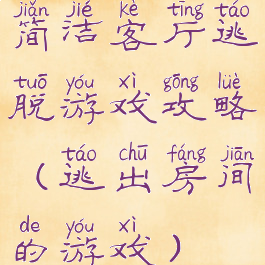 jiǎn jié kè tīng táo
简洁客厅逃
tuō yóu xì gōng lüè
脱游戏攻略
táo chū fáng jiān
（逃出房间
de yóu xì
的游戏）